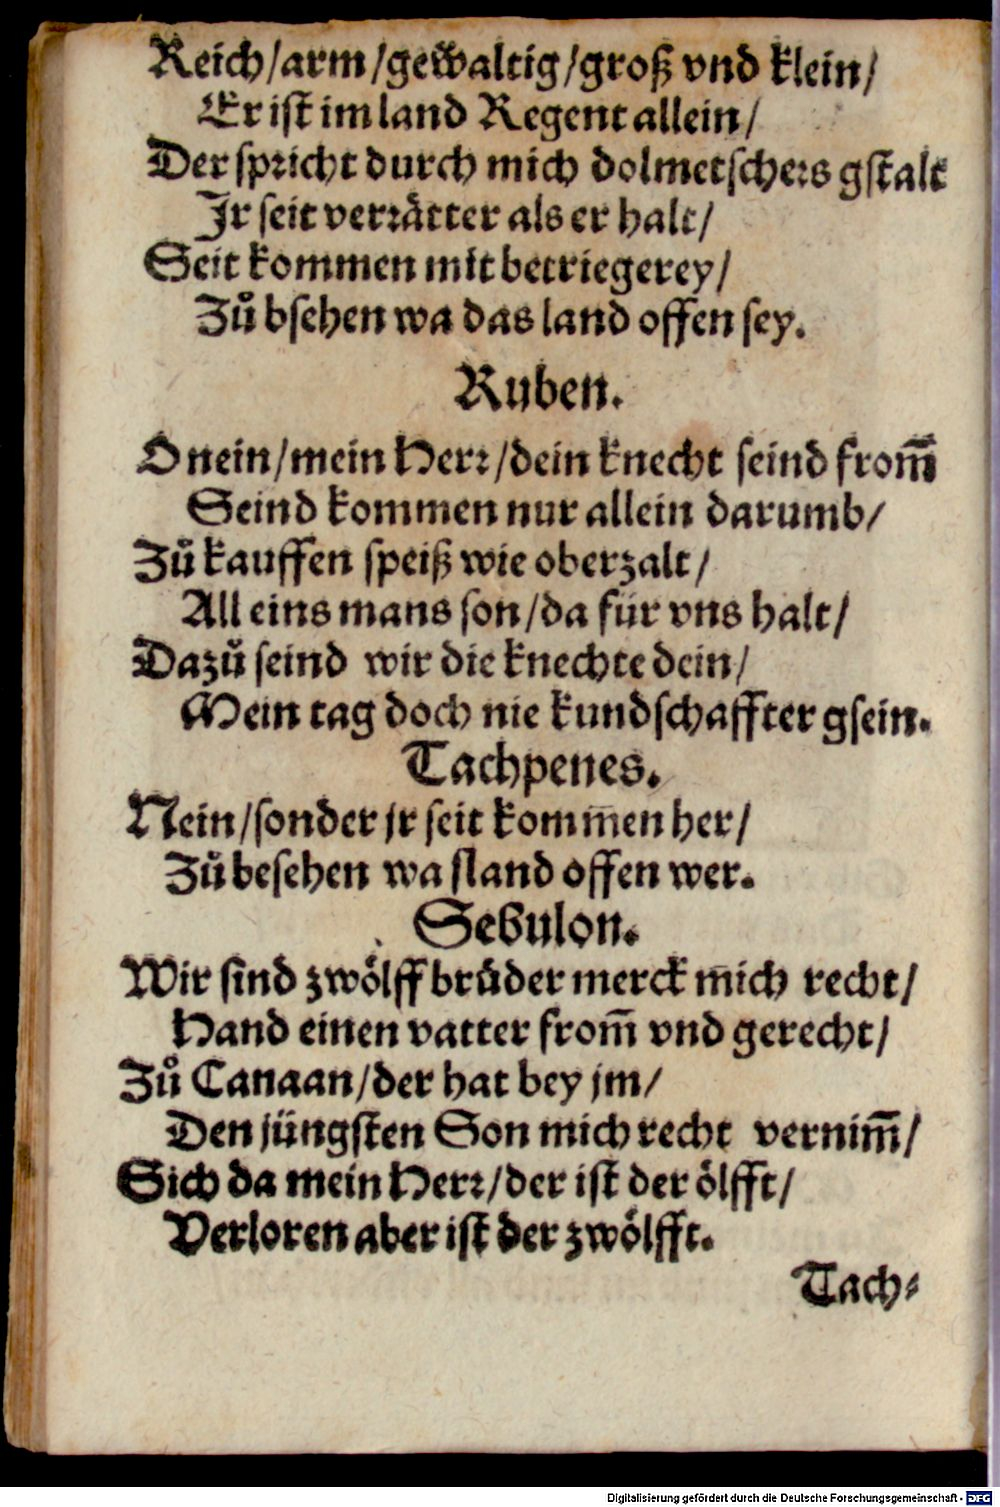 Reich/arm/gewaltig/groß vnd klein/
Er ist im land Regent allein/
Der spricht durch mich dolmetschers gstalt
Jr seit verrätter als er halt/
Seit kommen mit betriegerey/
Zů bsehen wa das land offen sey.
Ruben.
O nein/mein Herr/dein knecht seind from̄
Seind kommen nur allein darumb/
Zů kauffen speiß wie oberzalt/
All eins mans son/da für vns halt/
Dazů seind wir die knechte dein/
Mein tag doch nie kundschaffter gsein.
Tachpenes.
Nein/sonder jr seit kommen her/
Zů besehen wa sland offen wer.
Sebulon.
Wir sind zwölff brüder merck mich recht/
Hand einen vatter from̄ vnd gerecht/
Zů Canaan/der hat bey jm/
Den jüngsten Son mich recht vernim̄/
Sich da mein Herr/der ist der ölfft/
Verloren aber ist der zwölfft.
Tach-
Digitalisierung gefördert durch die Deutsche Forschungsgemeinschaft - DFG